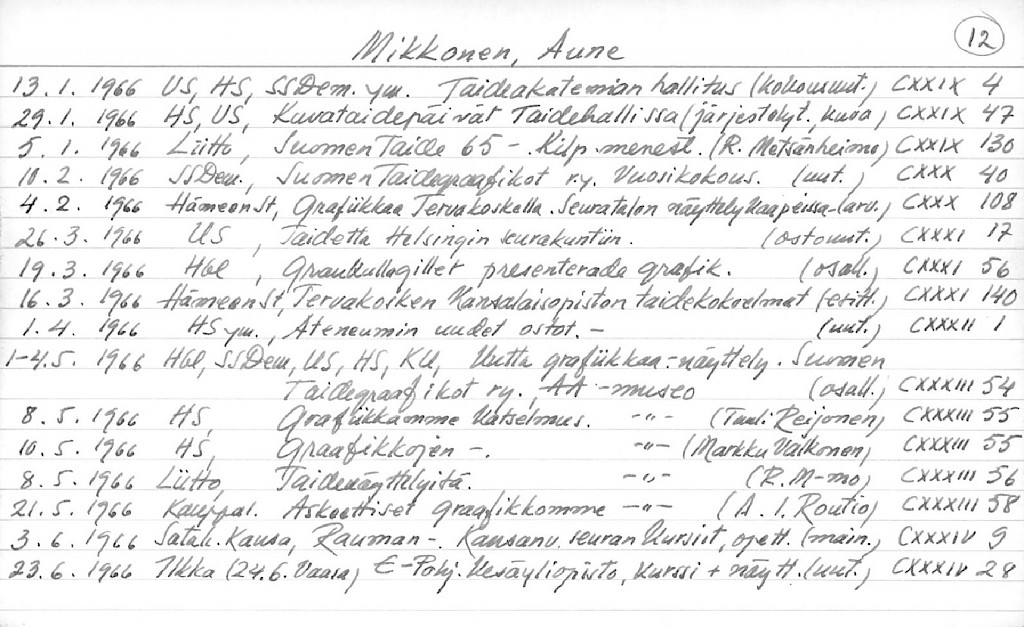 12
Mikkonen, Aune
13.1. 1966 US, HS, SSDem. ym. Taideakatemian hallitus (kokousuut.) CXXIX 4
29.1. 1966 HS, US, Kuvataidepäivät Taidehallissa (järjestelyt., kuva) CXXIX 47
5.1. 1966 Liitto, Suomen Taide 65 -. Kilp. menest. (R. Metsänheimo) CXXIX 130
10.2. 1966 SSDem., Suomen Taidegraafikot ry. Vuosikokous. (uut.) CXXX 40
4.2. 1966 HämeenSt, Grafiikkaa Tervakoskella. Seuratalon näyttelykaapeissa - (arv.) CXXX 108
26.3. 1966 US, Taidetta Helsingin seurakuntiin. (ostouut.) CXXXI 17
19.3. 1966 Hbl, Grankullagillet presenterade grafik. (osall.) CXXXI 56
16.3. 1966 HämeenSt, Tervakosken Kansalaisopiston taidekokoelmat (esitt.) CXXXI 140
1.4. 1966 HS ym., Ateneumin uudet ostot. - (uut.) CXXXII 1
1-4.5. 1966 Hbl, SSDem, US, HS, KU, Uutta grafiikkaa -näyttely. Suomen
Taidegraafikot ry., AA -museo (osall.) CXXXIII 54
8.5. 1966 HS, Grafiikkamme katselmus. -"- (Tuul. Reijonen) CXXXIII 55
10.5. 1966 HS, Graafikkojen -. -"- (Markku Valkonen) CXXXIII 55
8.5. 1966 Liitto, Taidenäyttelyitä. -"- (R.M-mo) CXXXIII 56
21.5. 1966 Kauppal. Askeettiset graafikkomme -"- (A.I. Routio) CXXXIII 58
3.6. 1966 Satak. Kansa, Rauman -. Kansanv. seuran kurssit, opett. (main.) CXXXIV 9
23.6. 1966 Ilkka (24.6. Vaasa) E-Pohj. Kesäyliopisto, kurssi + näytt. (uut.) CXXXIV 28